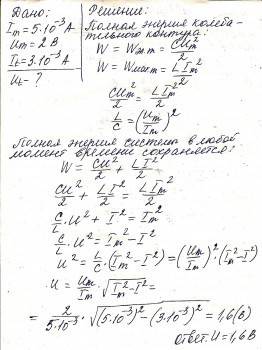 Дано:
I_m = 5·10⁻³ A
U_m = 2 В
I_t = 3·10⁻³ A
U_t - ?
Решение:
Полная энергия колеба-
тельного контура:
W = W_эл m = CU_m²/2
W = W_маг m = LI_m²/2
CU_m²/2 = LI_m²/2
L/C = (U_m/I_m)²
Полная энергия системы в любой
момент времени сохраняется:
W = CU²/2 + LI²/2
CU²/2 + LI²/2 = LI_m²/2
C/L · U² + I² = I_m²
C/L U² = I_m² - I²
U² = L/C · (I_m² - I²) = (U_m/I_m)² · (I_m² - I²)
U = U_m/I_m · √(I_m² - I²) =
= 2/(5·10⁻³) · √((5·10⁻³)² - (3·10⁻³)²) = 1,6 (В)
Ответ: U = 1,6 В